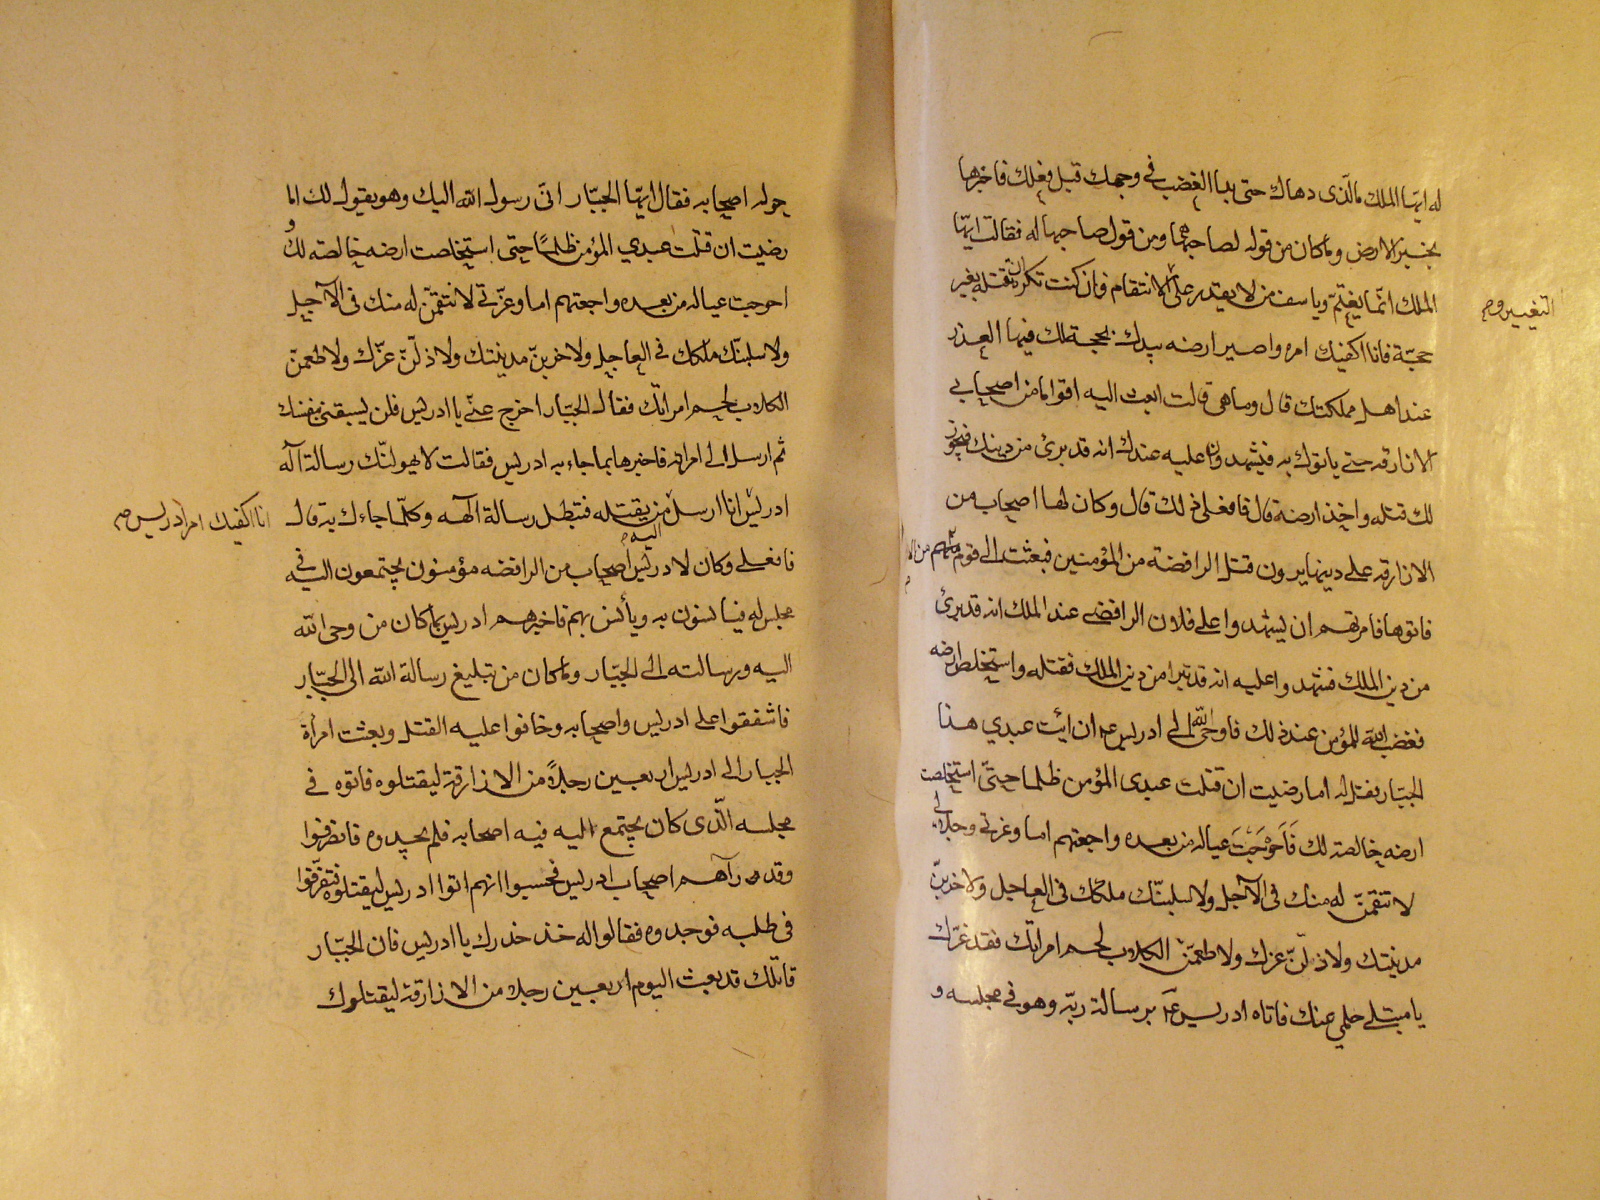 له ايها الملك ما الذى دهاك حتى بدا الغضب فى وجهك قبل فعلك فاخبرها
بخبر الارض وما كان من قوله لصاحبها ومن قول صاحبها له فقالت ايها
الملك انما يغتم وياسف من لا يقدر على الانتقام فان كنت تكره ان تقتله بغير
حجة فانا اكفيك امره واصير ارضه بيدك بحجة لك فيها العذر
عند اهل مملكتك قال وما هى قالت ابعث اليه اقواما من اصحابي
الازارقه حتى ياتوك به فيشهدوا عليه عندك انه قد برئ من دينك فيجوز
لك قتله واخذ ارضه قال فافعلى ذلك قال وكان لها اصحاب من
الازارقه على دينها يرون قتل الرافضة من المؤمنين فبعثت الى قوم منهم من الا
فاتوها فامرتهم ان يشهدوا على فلان الرافضى عند الملك انه قد برئ
من دين الملك فشهدوا عليه انه قد تبرا من دين الملك فقتله واستخلص ارضه
فغضب الله للمؤمن عند ذلك فاوحى الله الى ادريس ع ان ائت عبدي هذا
الجبار فقل له اما رضيت ان قتلت عبدى المؤمن ظلما حتى استخلصت
ارضه خالصة لك فَاَحْوَجْتَ عياله من بعده واجعتهم اما وعزتى وجلالى
لانتقمن له منك فى الآجل ولاسلبنّك ملكك فى العاجل ولاخربنّ
مدينتك ولاذلّنّ عزك ولاطعمنّ الكلاب لحم امراتك فقد غرّك
يا مبتلى حلمى عنك فاتاه ادريس ع برسالة ربّه وهو فى مجلسه و
التغيير وم
حوله اصحابه فقال ايّها الجبّار انّى رسول الله اليك وهو يقول لك اما
رضيت ان قتلت عبدي المؤمن ظلمًا حتى استخلصت ارضه خالصة لك و
احوجت عياله من بعده واجعتهم اما وعزّتى لانتقمنّ له منك فى الآجل
ولاسلبنّك ملكك فى العاجل ولاخربنّ مدينتك ولاذلّنّ عزّك ولاطعمنّ
الكلاب لحم امراتك فقال الجبّار اخرج عنّى يا ادريس فلن يسبقنى بنفسك
ثم ارسل الى امراته فاخبرها بما جاء به ادريس فقالت لا يهولنّك رسالة اله
ادريس انا ارسل من يقتله فتبطل رسالة الهه وكلّما جاءك به قال
انا اكفيك امر ادريس صح
فافعلى وكان لادريس اصحاب من الرافضه مؤمنون يجتمعون اليه فى
مجلس له فيانسون به ويأنس بهم فاخبرهم ادريس بما كان من وحى الله
اليه ورسالته الى الجبّار وما كان من تبليغ رسالة الله الى الجبّار
فاشفقوا على ادريس واصحابه وخافوا عليه القتل وبعثت امرأة
الجبار الى ادريس اربعين رجلاً من الازارقة ليقتلوه فاتوه فى
مجلسه الّذى كان يجتمع اليه فيه اصحابه فلم يجدوه فانصرفوا
وقد رآهم اصحاب ادريس فحسبوا انهم اتوا ادريس ليقتلوه فتفرّقوا
فى طلبه فوجدوه فقالوا له خذ حذرك يا ادريس فان الجبّار
قاتلك قد بعث اليوم اربعين رجلا من الازارقة ليقتلوك